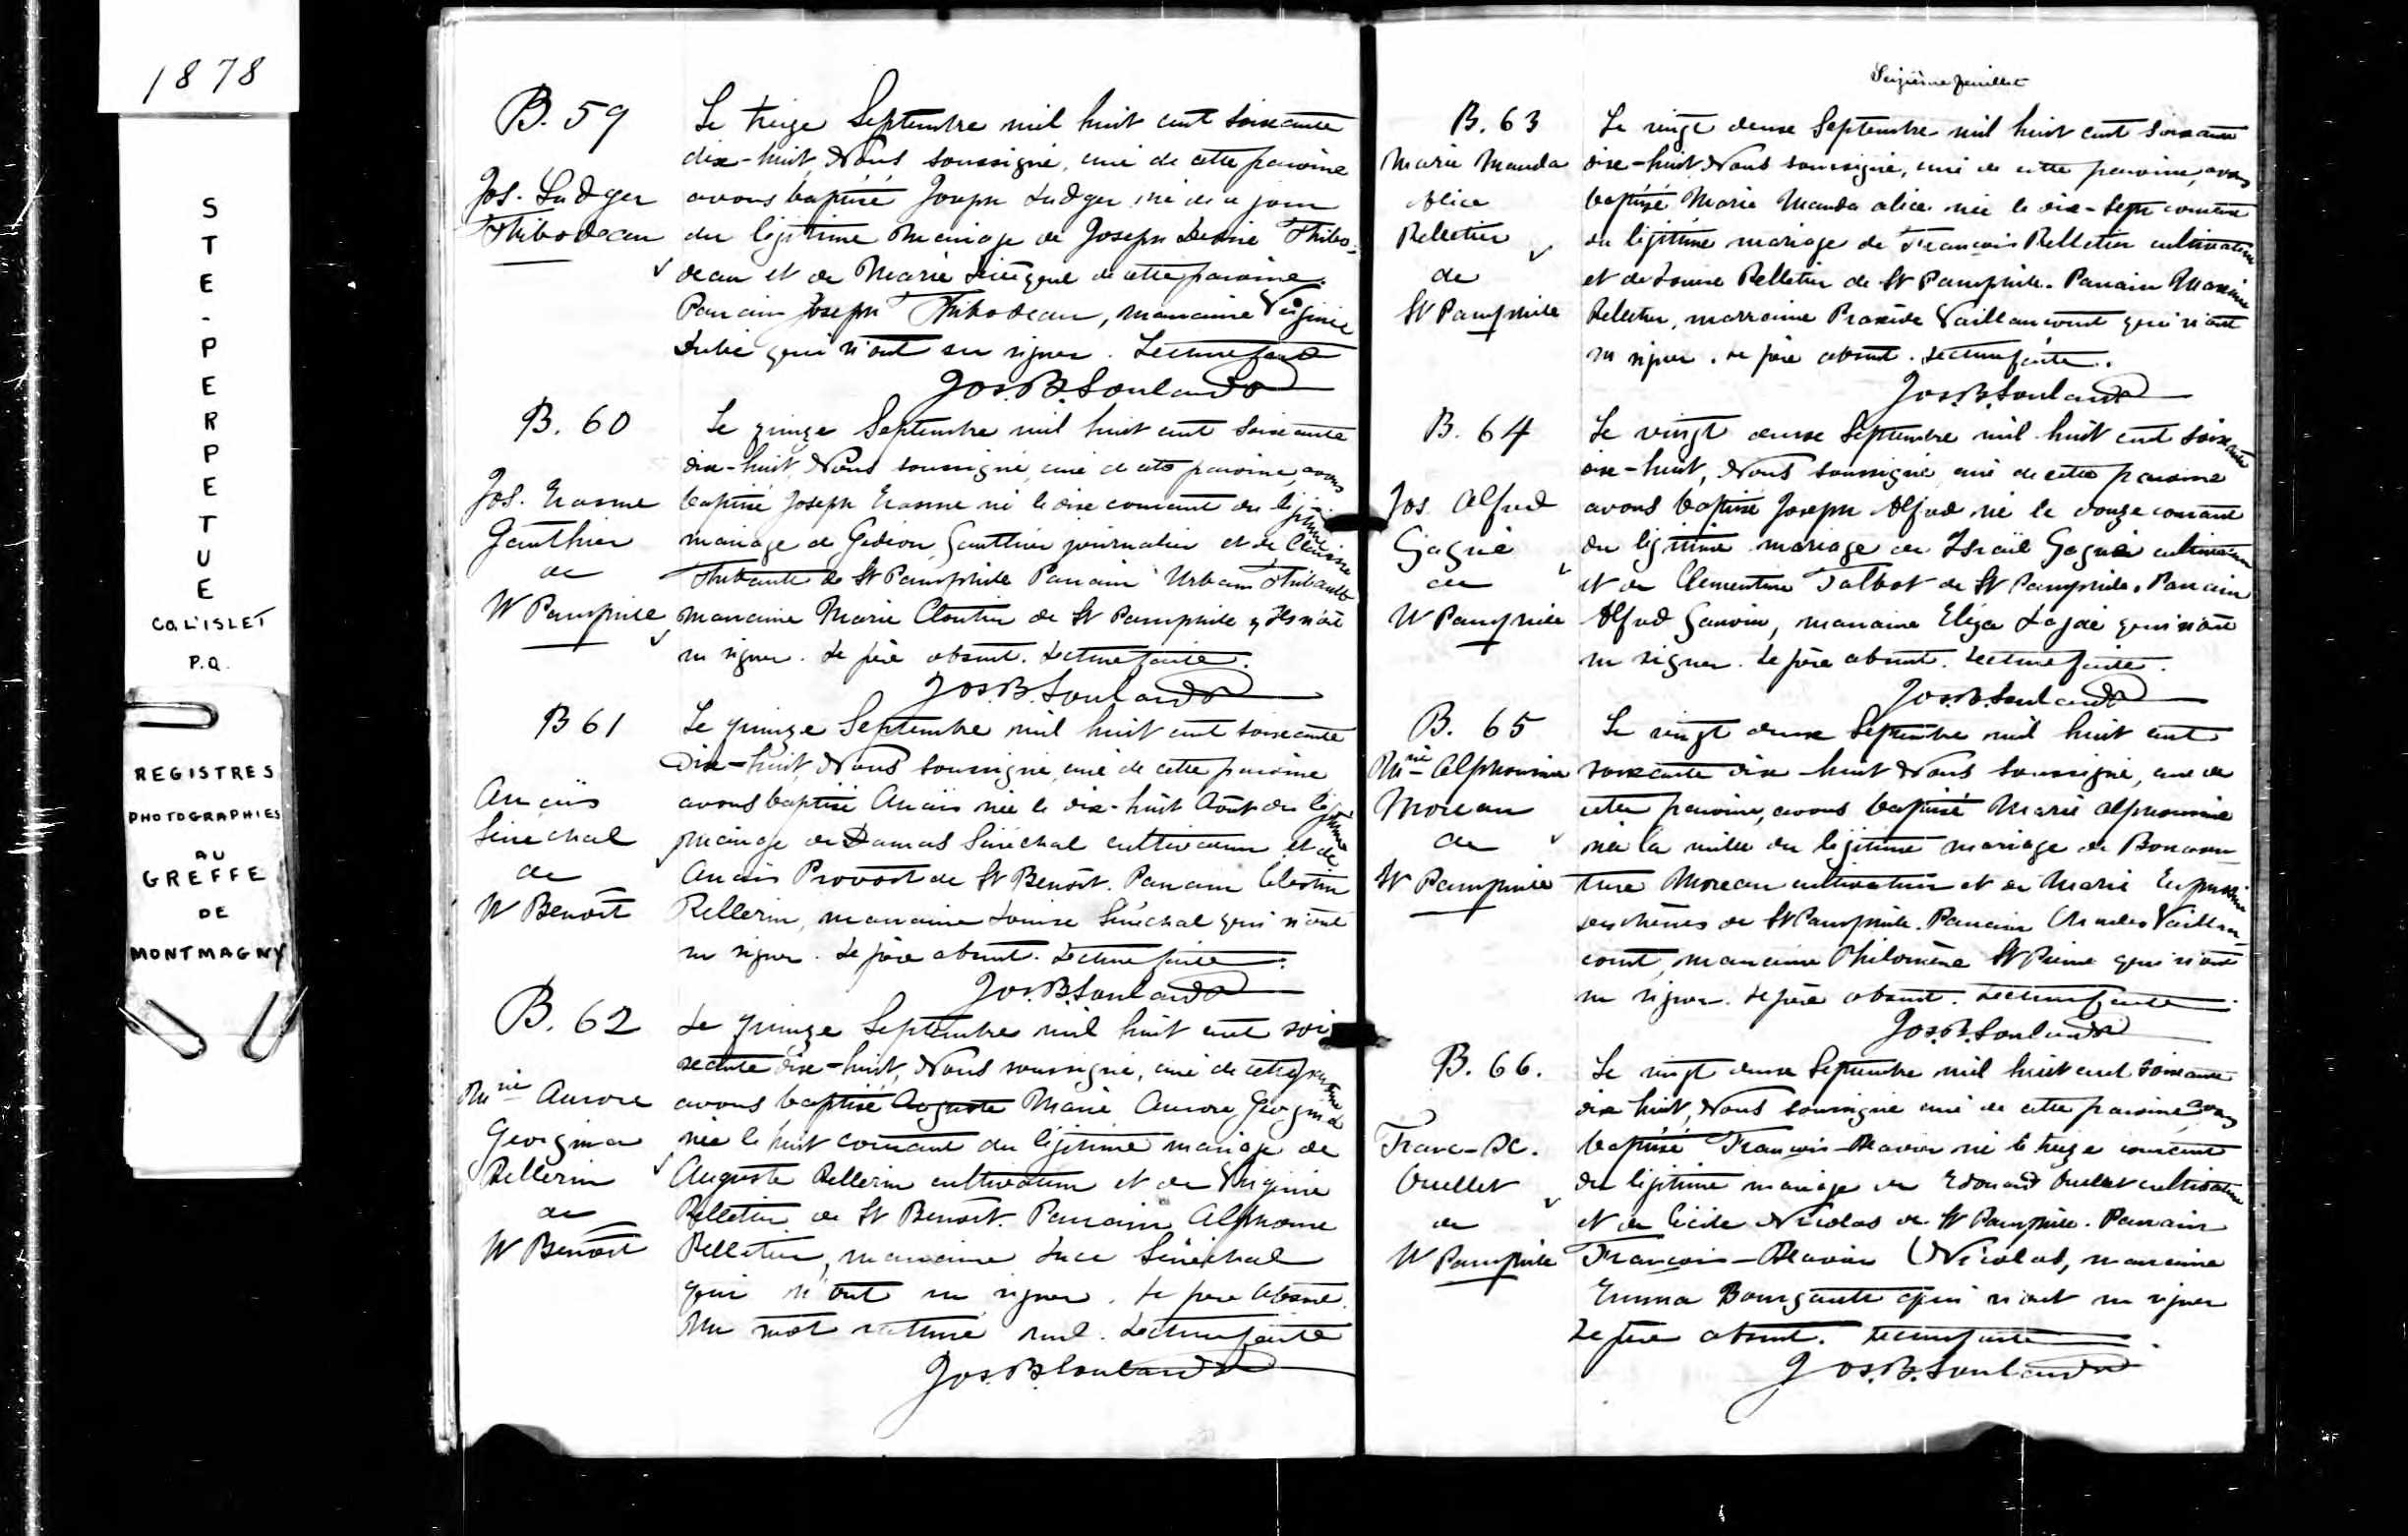 1878
STE-PERPETUE
CO. L'ISLET
P.Q.
REGISTRES
PHOTOGRAPHIES
AU
GREFFE
DE
MONTMAGNY
B. 59
Jos. Ludger
Thibodeau
Le treize Septembre mil huit cent soixante
dix-huit, Nous soussigné, curé de cette paroisse
avons baptisé Joseph Ludger, né de ce jour
du légitime mariage de Joseph Thibo-
deau et de Marie de cette paroisse.
Parrain Joseph Thibodeau, marraine Virginie
Dubé qui n'ont su signer. Lecture faite
Jos. B. Soulard
B. 60
Jos. Erasme
Gauthier
de
St Pamphile
Le quinze Septembre mil huit cent soixante
dix-huit, Nous soussigné, curé de cette paroisse, avons
baptisé Joseph Erasme né le dix courant du légitime
mariage de Gédéon Gauthier journalier et de
Thibault de St Pamphile Parrain Urbain Thibault
marraine Marie Cloutier de St Pamphile n'ont
su signer. Le père absent. Lecture faite.
Jos. B. Soulard
B 61
Anaïs
Sénéchal
de
St Benoît
Le quinze Septembre mil huit cent soixante
Dix-huit, Nous soussigné, curé de cette paroisse
avons baptisé Anaïs née le dix-huit Août du légitime
mariage de Damas Sénéchal cultivateur et de
Anaïs Provost de St Benoît. Parrain Célestin
Pellerin, marraine Louise Sénéchal qui n'ont
su signer. Le père absent. Lecture faite.
Jos. B. Soulard
B. 62
Mie Aurore
Georgina
Pellerin
de
St Benoît
Le quinze Septembre mil huit cent soi-
xante dix-huit, Nous soussigné, curé de cette paroisse
avons baptisé Auguste Marie Aurore Georgina
née le huit courant du légitime mariage de
Auguste Pellerin cultivateur et de Virginie
Pelletier de St Benoît. Parrain Alphonse
Pelletier, marraine Luce Sénéchal
qui n'ont su signer. Le père absent.
Un mot raturé nul. Lecture faite
Jos. B. Soulard
Seizième feuillet
B. 63
Marie Manda
Alice
Pelletier
de
St Pamphile
Le vingt deux Septembre mil huit cent soixante
dix-huit Nous soussigné, curé de cette paroisse, avons
baptisé Marie Manda Alice née le dix-sept courant
du légitime mariage de François Pelletier cultivateur
et de Louise Pelletier de St Pamphile. Parrain Maxime
Pelletier, marraine Praxède Vaillancourt qui n'ont
su signer. Le père absent. Lecture faite.
Jos. B. Soulard
B. 64
Jos. Alfred
Gagné
de
St Pamphile
Le vingt deux Septembre mil huit cent soixante
dix-huit, Nous soussigné curé de cette paroisse
avons baptisé Joseph Alfred né le douze courant
du légitime mariage de Israël Gagné cultivateur
et de Clementine Talbot de St Pamphile. Parrain
Alfred, marraine Eliza qui n'ont
su signer. Le père absent. Lecture faite.
Jos. B. Soulard
B. 65
Mie Alphonsine
Moreau
de
St Pamphile
Le vingt deux Septembre mil huit cent
soixante dix-huit Nous soussigné, curé de
cette paroisse, avons baptisé Marie Alphonsine
née la veille du légitime mariage de Bonaven-
ture Moreau cultivateur et de Marie Euphrosine
Deschênes de St Pamphile. Parrain Charles Vaillan-
court, marraine Philomène St Pierre qui n'ont
su signer. Le père absent. Lecture faite.
Jos. B. Soulard
B. 66.
Franc-Xc.
Ouellet
de
St Pamphile
Le vingt deux Septembre mil huit cent soixante
dix huit, Nous soussigné curé de cette paroisse avons
baptisé François-Xavier né le treize courant
du légitime mariage de Edouard Ouellet cultivateur
et de Cécile Nicolas de St Pamphile. Parrain
François-Xavier Nicolas, marraine
Emma Bourgault qui n'ont su signer
Le père absent. Lecture faite.
Jos. B. Soulard